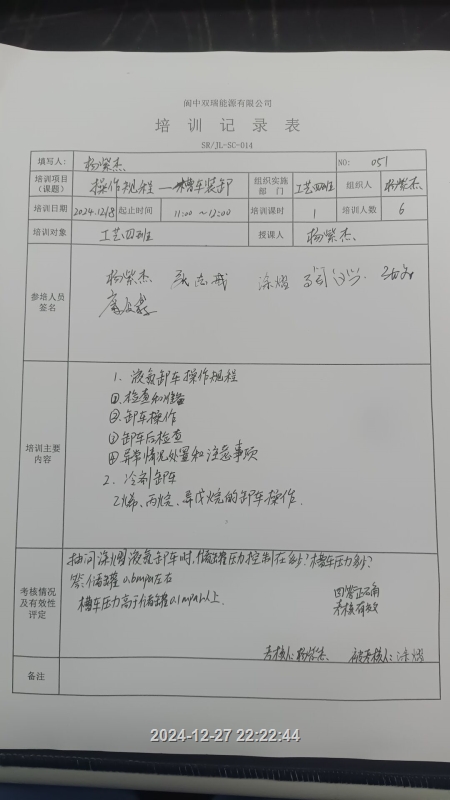 阆中双瑞能源有限公司
培 训 记 录 表
SR/JL-SC-014
填写人: 杨紫杰 NO: 051
培训项目(课题) 操作规程—槽车装卸 组织实施部 门 工艺四班 组织人 杨紫杰
培训日期 2024.12.18 起止时间 11:00 ~12:00 培训课时 1 培训人数 6
培训对象 工艺四班 授课人 杨紫杰
参培人员签名 杨紫杰 涂熠
培训主要内容
1、液氨卸车操作规程
①.检查和准备
②.卸车操作
③卸车后检查
④异常情况处置和注意事项
2、冷剂卸车
乙烯、丙烷、异戊烷的卸车操作.
考核情况及有效性评定
抽问涂熠液氨卸车时,储罐压力控制在多少?槽车压力多少?
答:储罐0.6mpa左右
槽车压力高于储罐0.1mpa以上.
回答正确
考核有效
考核人:杨紫杰 被考核人:涂熠
备注
2024-12-27 22:22:44